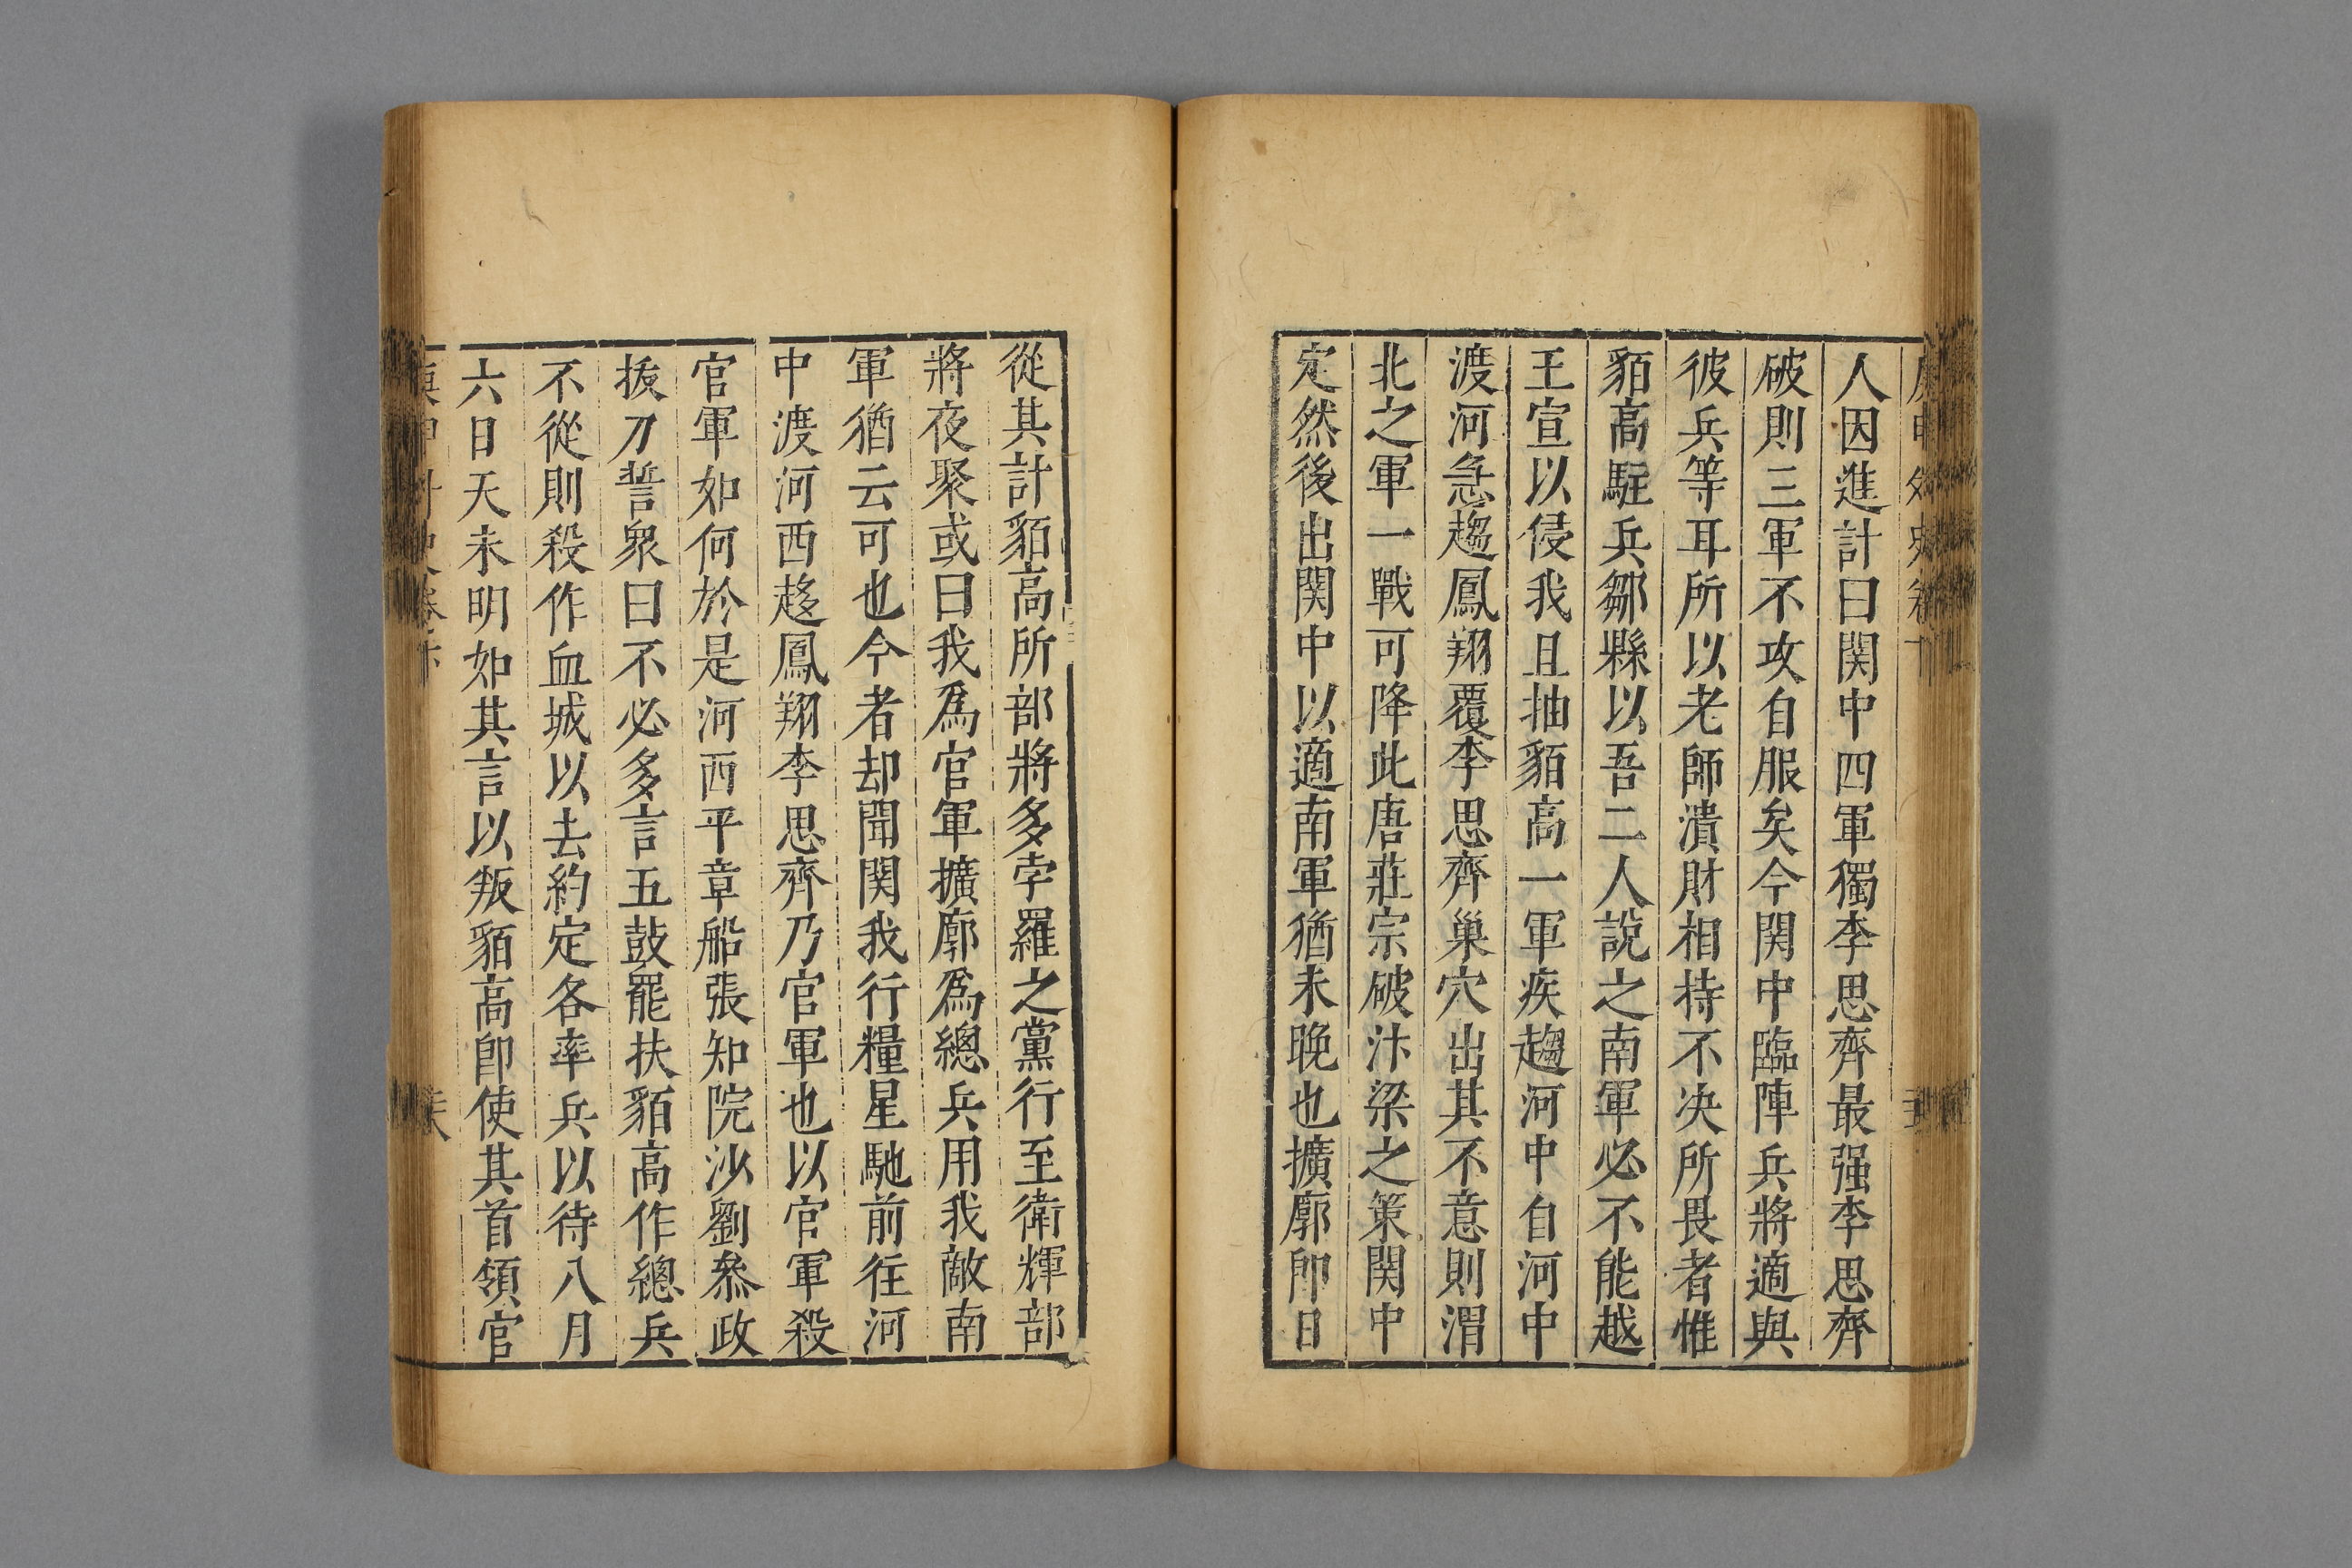 人因進計曰関中四軍獨李思齊最强李思齊
破則三軍不攻自服矣今関中臨陣兵將適與
彼兵等耳所以老師潰財相持不决所畏者惟
貊高駐兵鄒縣以吾二人說之南軍必不能越
王宣以侵我且抽貊高一軍疾趨河中自河中
渡河急趨鳳翔覆李思齊巢穴出其不意則渭
北之軍一戰可降此唐莊宗破汴梁之策関中
定然後出関中以適南軍猶未晚也擴廓即日
從其計貊高所部將多孛羅之黨行至衛輝部
將夜聚或曰我爲官軍擴廓爲總兵用我敵南
軍猶云可也今者却聞関我行糧星馳前往河
中渡河西趍鳳翔李思齊乃官軍也以官軍殺
官軍如何於是河西平章船張知院沙劉叅政
拔刀誓衆曰不必多言五鼓罷扶貊高作總兵
不從則殺作血城以去約定各率兵以待八月
六日天未明如其言以叛貊高即使其首領官